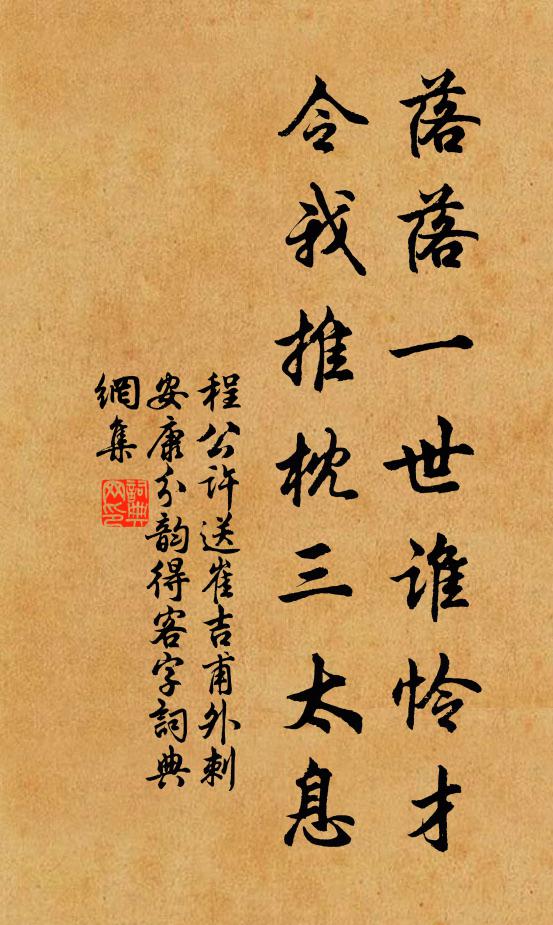 落落一世誰怜才
令我推枕三太息
程公許送崔吉甫外刺
安康分韵得客字詞典
網集
詞典網印